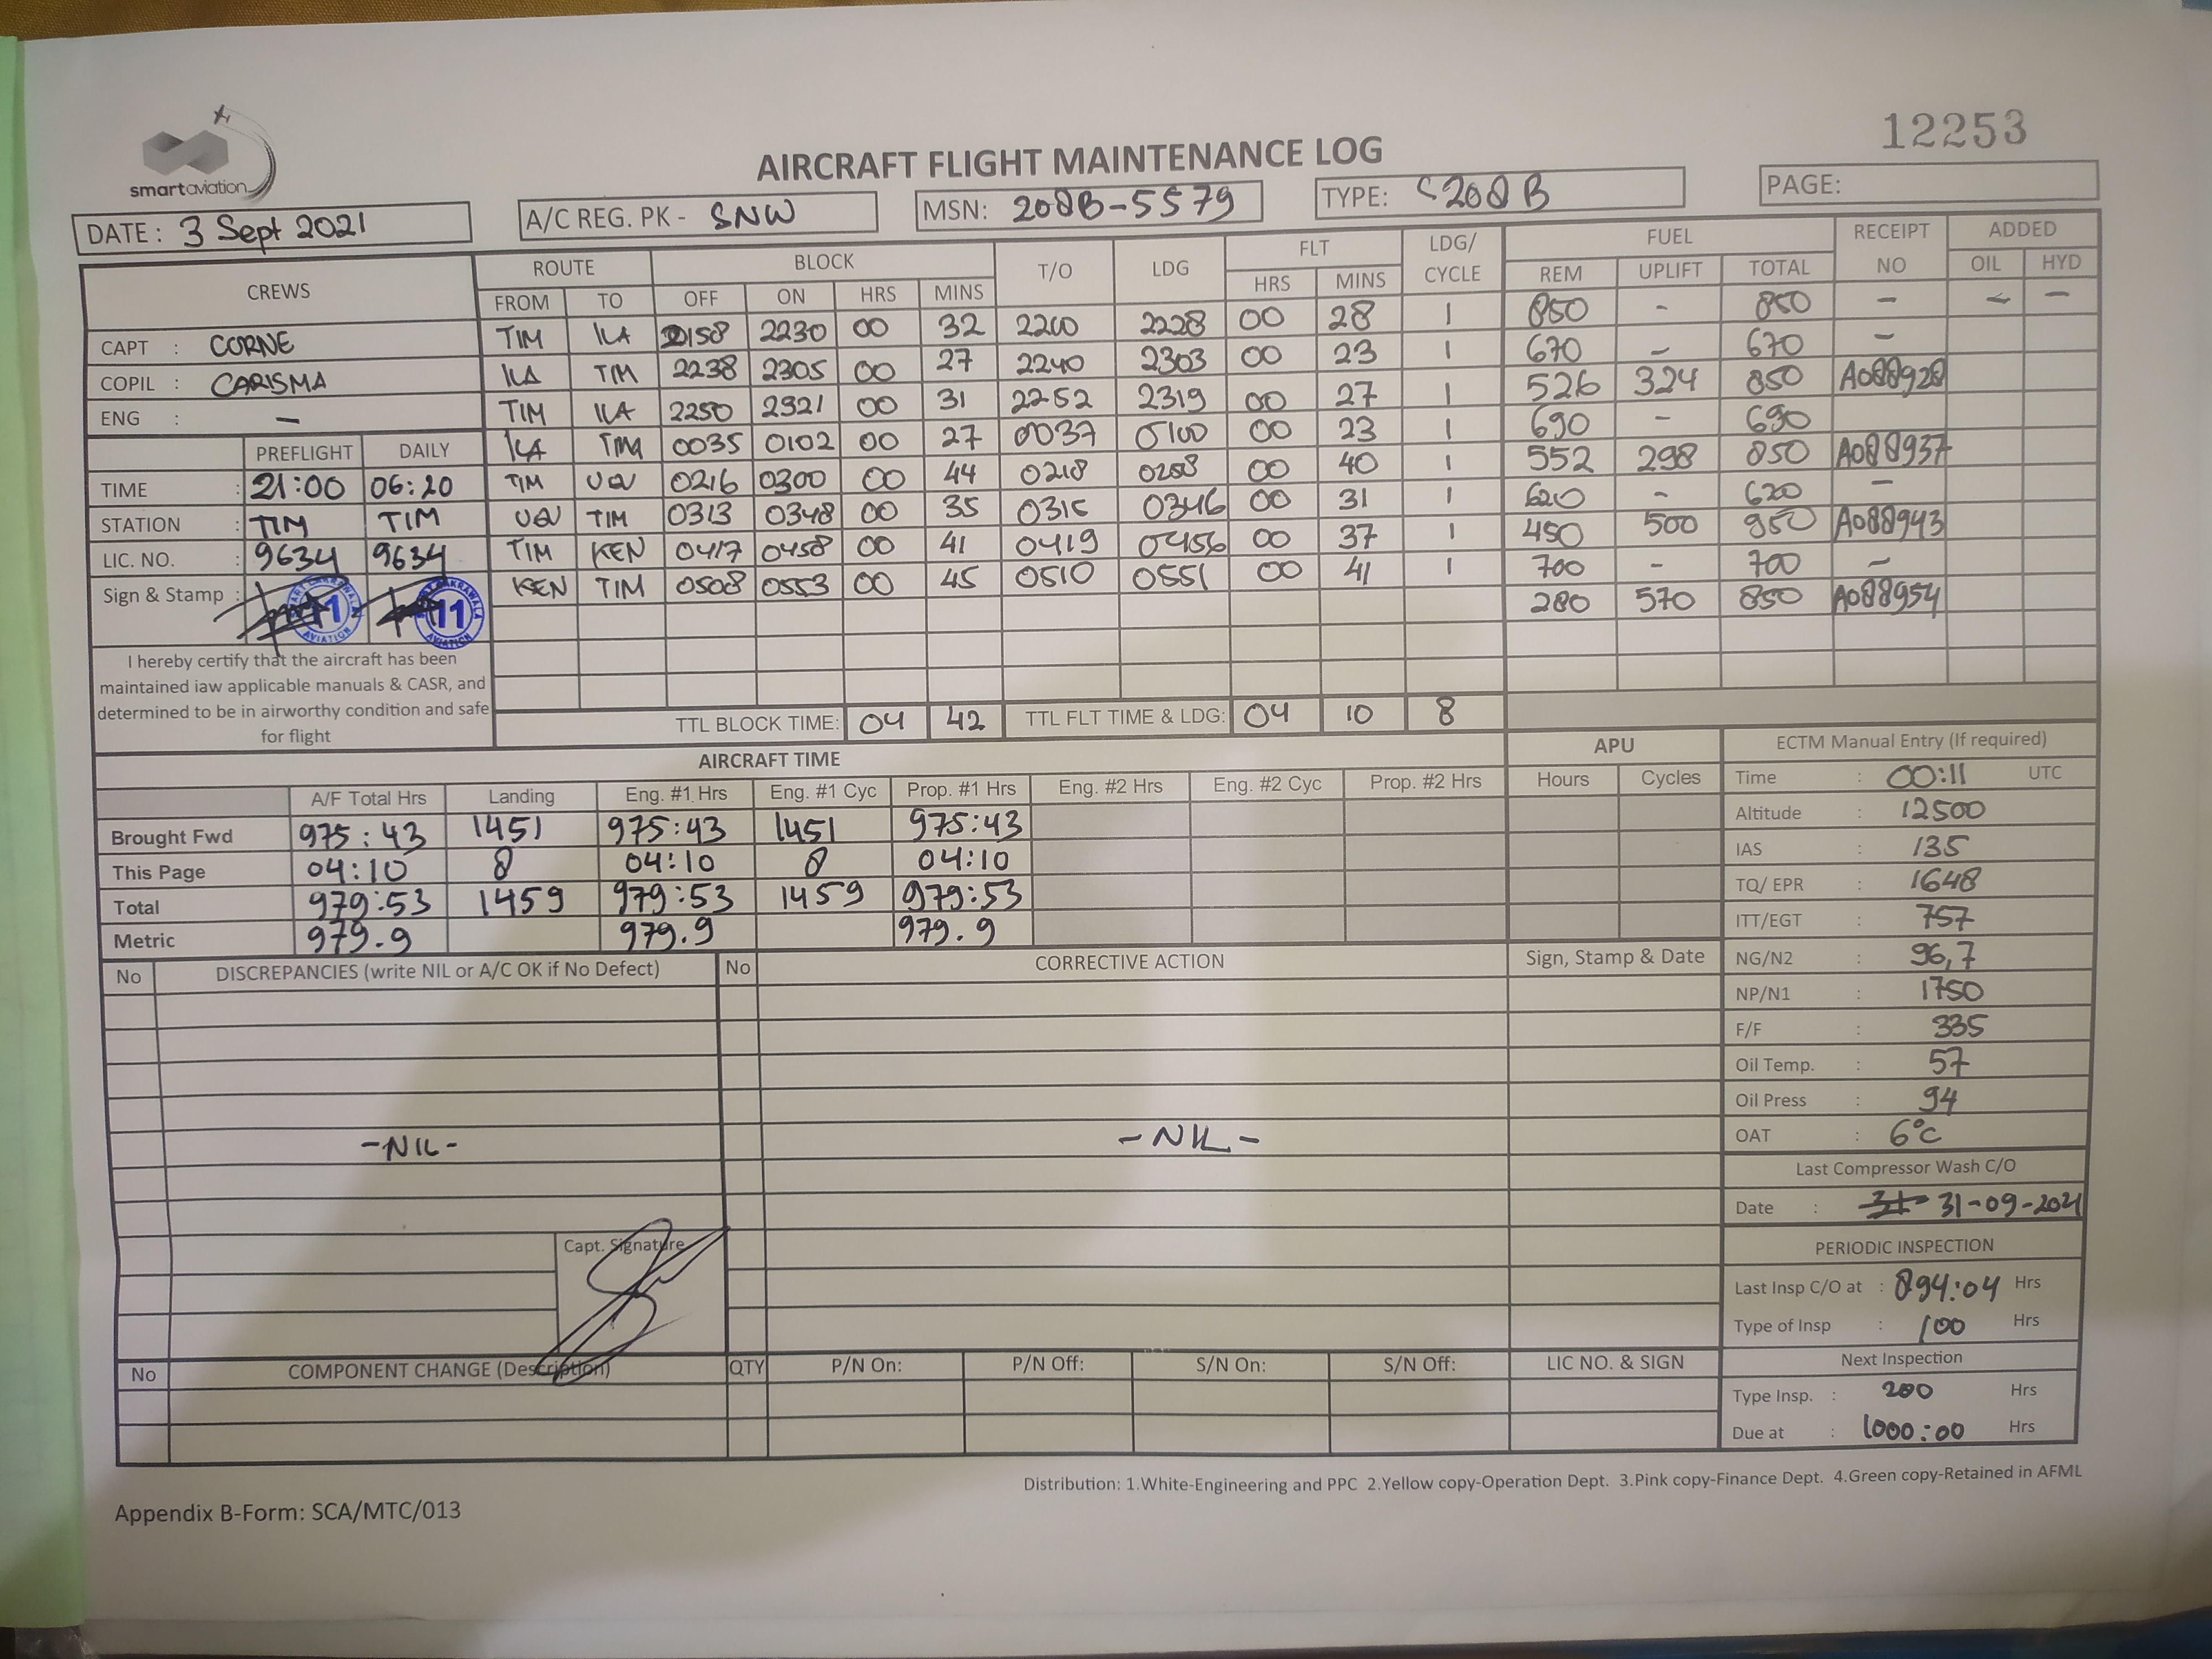 smartaviation
12253
AIRCRAFT FLIGHT MAINTENANCE LOG
DATE: 3 Sept 2021 A/C REG. PK - SNW MSN: 208B-5579 TYPE: C208B PAGE:
CREWS ROUTE BLOCK T/O LDG FLT LDG/ CYCLE FUEL RECEIPT NO ADDED
FROM TO OFF ON HRS MINS HRS MINS REM UPLIFT TOTAL OIL HYD
CAPT : CORNE
COPIL : CARISMA
ENG : -
TIM ILA 2158 2230 00 32 2200 2228 00 28 1 850 - 850 - - -
ILA TIM 2238 2305 00 27 2240 2303 00 23 1 670 - 670 -
TIM ILA 2250 2321 00 31 2252 2319 00 27 1 526 324 850 A088928
ILA TIM 0035 0102 00 27 0037 0100 00 23 1 690 - 690
TIM 0216 0300 00 44 0218 0258 00 40 1 552 298 850 A088937
TIM 0313 0348 00 35 0315 0346 00 31 1 620 - 620 -
TIM KEN 0417 0458 00 41 0419 0456 00 37 1 450 500 950 A088943
KEN TIM 0508 0553 00 45 0510 0551 00 41 1 700 - 700 -
280 570 850 A088954
PREFLIGHT DAILY
TIME : 21:00 06:20
STATION : TIM TIM
LIC. NO. : 9634 9634
Sign & Stamp :
11 AVIATION
11 AVIATION
I hereby certify that the aircraft has been
maintained iaw applicable manuals & CASR, and
determined to be in airworthy condition and safe
for flight
TTL BLOCK TIME: 04 42 TTL FLT TIME & LDG: 04 10 8
AIRCRAFT TIME
A/F Total Hrs Landing Eng. #1 Hrs Eng. #1 Cyc Prop. #1 Hrs Eng. #2 Hrs Eng. #2 Cyc Prop. #2 Hrs
Brought Fwd 975:43 1451 975:43 1451 975:43
This Page 04:10 8 04:10 8 04:10
Total 979:53 1459 979:53 1459 979:53
Metric 979.9 979.9 979.9
APU
Hours Cycles
ECTM Manual Entry (If required)
Time : 00:11 UTC
Altitude : 12500
IAS : 135
TQ/ EPR : 1648
ITT/EGT : 757
NG/N2 : 96,7
NP/N1 : 1750
F/F : 335
Oil Temp. : 57
Oil Press : 94
OAT : 6°C
Last Compressor Wash C/O
Date : 31-09-2021
PERIODIC INSPECTION
Last Insp C/O at : 894:04 Hrs
Type of Insp : 100 Hrs
Next Inspection
Type Insp. : 200 Hrs
Due at : 1000:00 Hrs
No DISCREPANCIES (write NIL or A/C OK if No Defect) No CORRECTIVE ACTION Sign, Stamp & Date
-NIL- -NIL-
Capt. Signature
No COMPONENT CHANGE (Description) QTY P/N On: P/N Off: S/N On: S/N Off: LIC NO. & SIGN
Distribution: 1.White-Engineering and PPC 2.Yellow copy-Operation Dept. 3.Pink copy-Finance Dept. 4.Green copy-Retained in AFML
Appendix B-Form: SCA/MTC/013